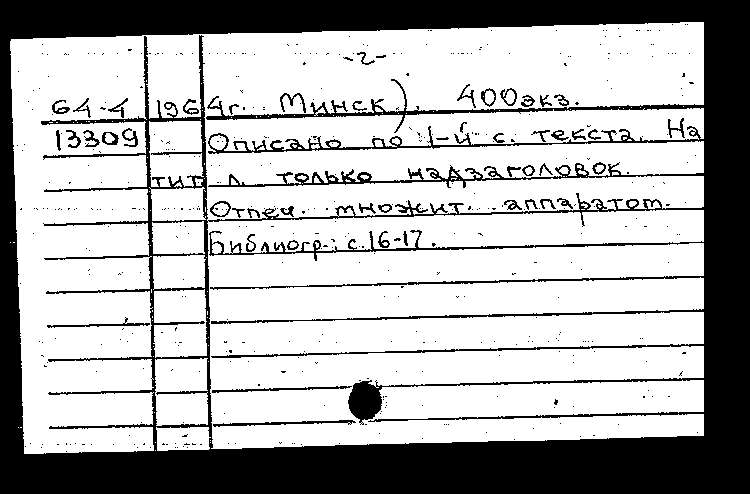 -2-
64-4 1964г. Минск). 400экз.
13309 Описано по 1-й с. текста. На
тит. л. только надзаголовок.
Отпеч. множит. аппаратом.
Библиогр.: с.16-17.